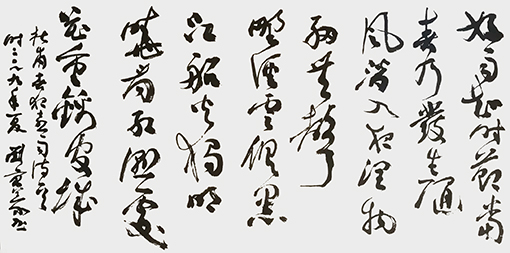 好雨知時節當
春乃發生隨
風潛入夜潤物
細無聲
野徑雲俱黑
江船火獨明
曉看紅濕處
花重錦官城
杜甫春夜喜雨詩一首
時二〇〇九年夏